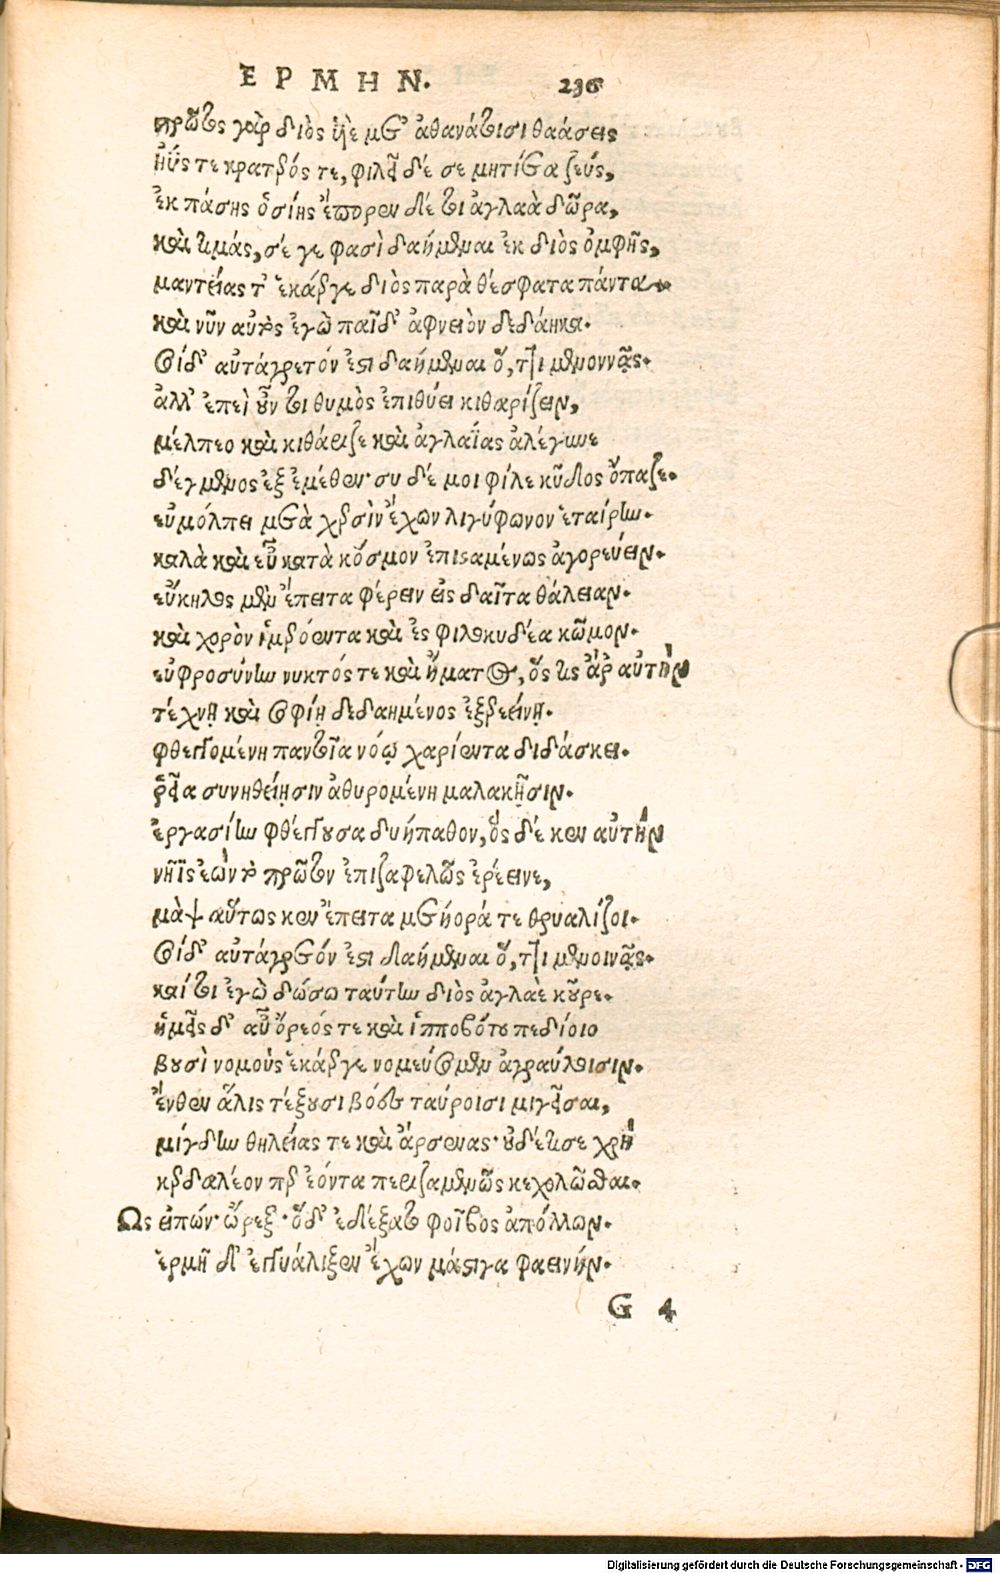 ΕΡΜΗΝ. 236
πρῶτος γὰρ διὸς ὑὲ μετ' ἀθανάτοισι θαάσεις
ἠΰς τε κρατερός τε, φιλεῖ δέ σε μητίετα ζεύς,
ἐκ πάσης ὁσίης ἔπορεν δέ τοι ἀγλαὰ δῶρα,
καὶ τιμάς, σέ γε φασὶ δαήμεναι ἐκ διὸς ὀμφῆς,
μαντείας τ' ἑκάεργε διὸς παρὰ θέσφατα πάντα.
καὶ νῦν αὐτὸς ἐγὼ παῖδ' ἀφνειὸν δεδάηκα.
σοὶ δ' αὐτάγρετόν ἐστι δαήμεναι ὅ, ττι μενοινᾷς.
ἀλλ' ἐπεὶ οὖν τοι θυμὸς ἐπιθύει κιθαρίζειν,
μέλπεο καὶ κιθάριζε καὶ ἀγλαΐας ἀλέγυνε
δέγμενος ἐξ ἐμέθεν· συ δέ μοι φίλε κῦδος ὄπαζε.
εὐμόλπει μετὰ χερσὶν ἔχων λιγύφωνον ἑταίρην.
καλὰ καὶ εὖ κατὰ κόσμον ἐπισταμένως ἀγορεύειν.
εὔκηλος μὲν ἔπειτα φέρειν εἰς δαῖτα θάλειαν.
καὶ χορὸν ἱμερόεντα καὶ ἐς φιλοκυδέα κῶμον.
εὐφροσύνην νυκτός τε καὶ ἤματος, ὅς τις ἂρ αὐτὴν
τέχνῃ καὶ σοφίῃ δεδαημένος ἐξερεείνῃ.
φθεγγομένη παντοῖα νόῳ χαρίεντα διδάσκει.
ῥεῖα συνηθείῃσιν ἀθυρομένη μαλακῇσιν.
ἐργασίην φθέγγουσα δυήπαθον, ὃς δέ κεν αὐτὴν
νῆϊς ἐὼν τὸ πρῶτον ἐπιζαφελῶς ἐρέεινε,
μὰψ αὔτως κεν ἔπειτα μετήορά τε θρυαλίζοι.
σοὶ δ' αὐτάγρετόν ἐστι δαήμεναι ὅ, ττι μενοινᾷς.
καί τοι ἐγὼ δώσω ταύτην διὸς ἀγλαὲ κοῦρε.
ἡμεῖς δ' αὖ ὄρεός τε καὶ ἱπποβότου πεδίοιο
βουσὶ νομοὺς ἑκάεργε νομεύσομεν ἀγραύλοισιν.
ἔνθεν ἅλις τέξουσι βόες ταύροισι μιγεῖσαι,
μίγδην θηλείας τε καὶ ἄρσενας· οὐδέ τι σε χρὴ
κερδαλέον περ ἐόντα περιζαμενῶς κεχολῶσθαι.
Ως εἰπών· ὤρεξ'· ὅδ' ἐδέξατο φοῖβος ἀπόλλων.
ἑρμῇ δ' ἐγγυάλιξεν ἔχων μάστιγα φαεινήν.
G 4
Digitalisierung gefördert durch die Deutsche Forschungsgemeinschaft - DFG